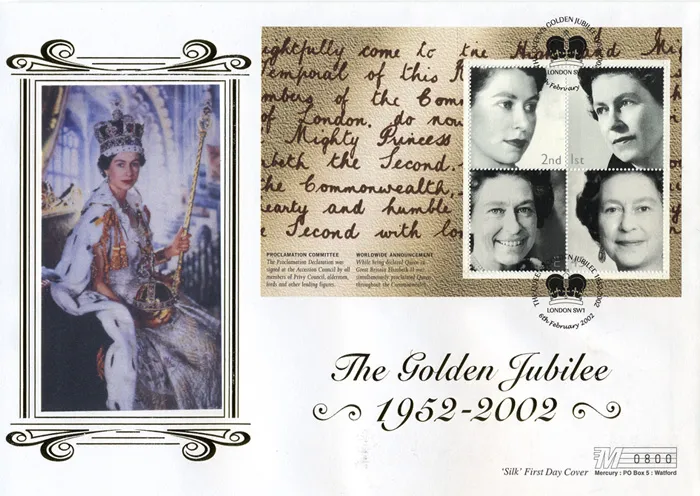 ghtfully come to the H and Mig
Temporal of this R
mbers of the Com
of London, do now
Mighty Princess
abeth the Second.
the Commonwealth,
earty and humble
e Second with lo
PROCLAMATION COMMITTEE
The Proclamation Declaration was
signed at the Accession Council by all
members of Privy Council, aldermen,
lords and other leading figures.
WORLDWIDE ANNOUNCEMENT
While being declared Queen in
Great Britain Elizabeth II was
simultaneously proclaimed Queen
throughout the Commonwealth.
GOLDEN JUBILEE
LONDON SW1
6th February
2nd
1st
THE GOLDEN JUBILEE 1952-2002
LONDON SW1
6th February 2002
The Golden Jubilee
1952-2002
'Silk' First Day Cover
M 0800
Mercury : PO Box 5 : Watford